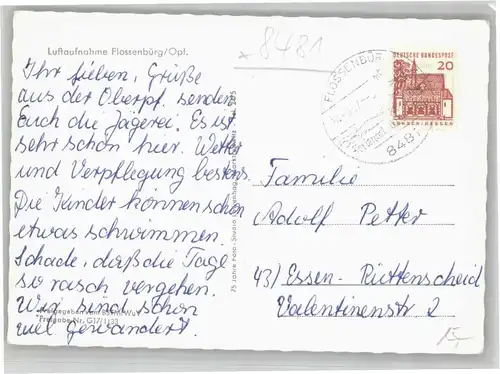 Luftaufnahme Flossenbürg/Opf.
8481
Ihr lieben, Grüße
aus der Oberpf. senden
Euch die Jägerei. Es ist
sehr schön hier. Wetter
und Verpflegung bestens.
Die Kinder können schon
etwas schwimmen.
Schade, daß die Tage
so rasch vergehen.
Wir sind schon
viel gewandert.
Freigabe Nr. G17/1133
75 Jahre Foto-Studio
FLOSSENBÜRG
8481
DEUTSCHE BUNDESPOST
20
LORSCH/HESSEN
Familie
Adolf Petter
43/ Essen-Rüttenscheid
Valentinenstr 2
15,-